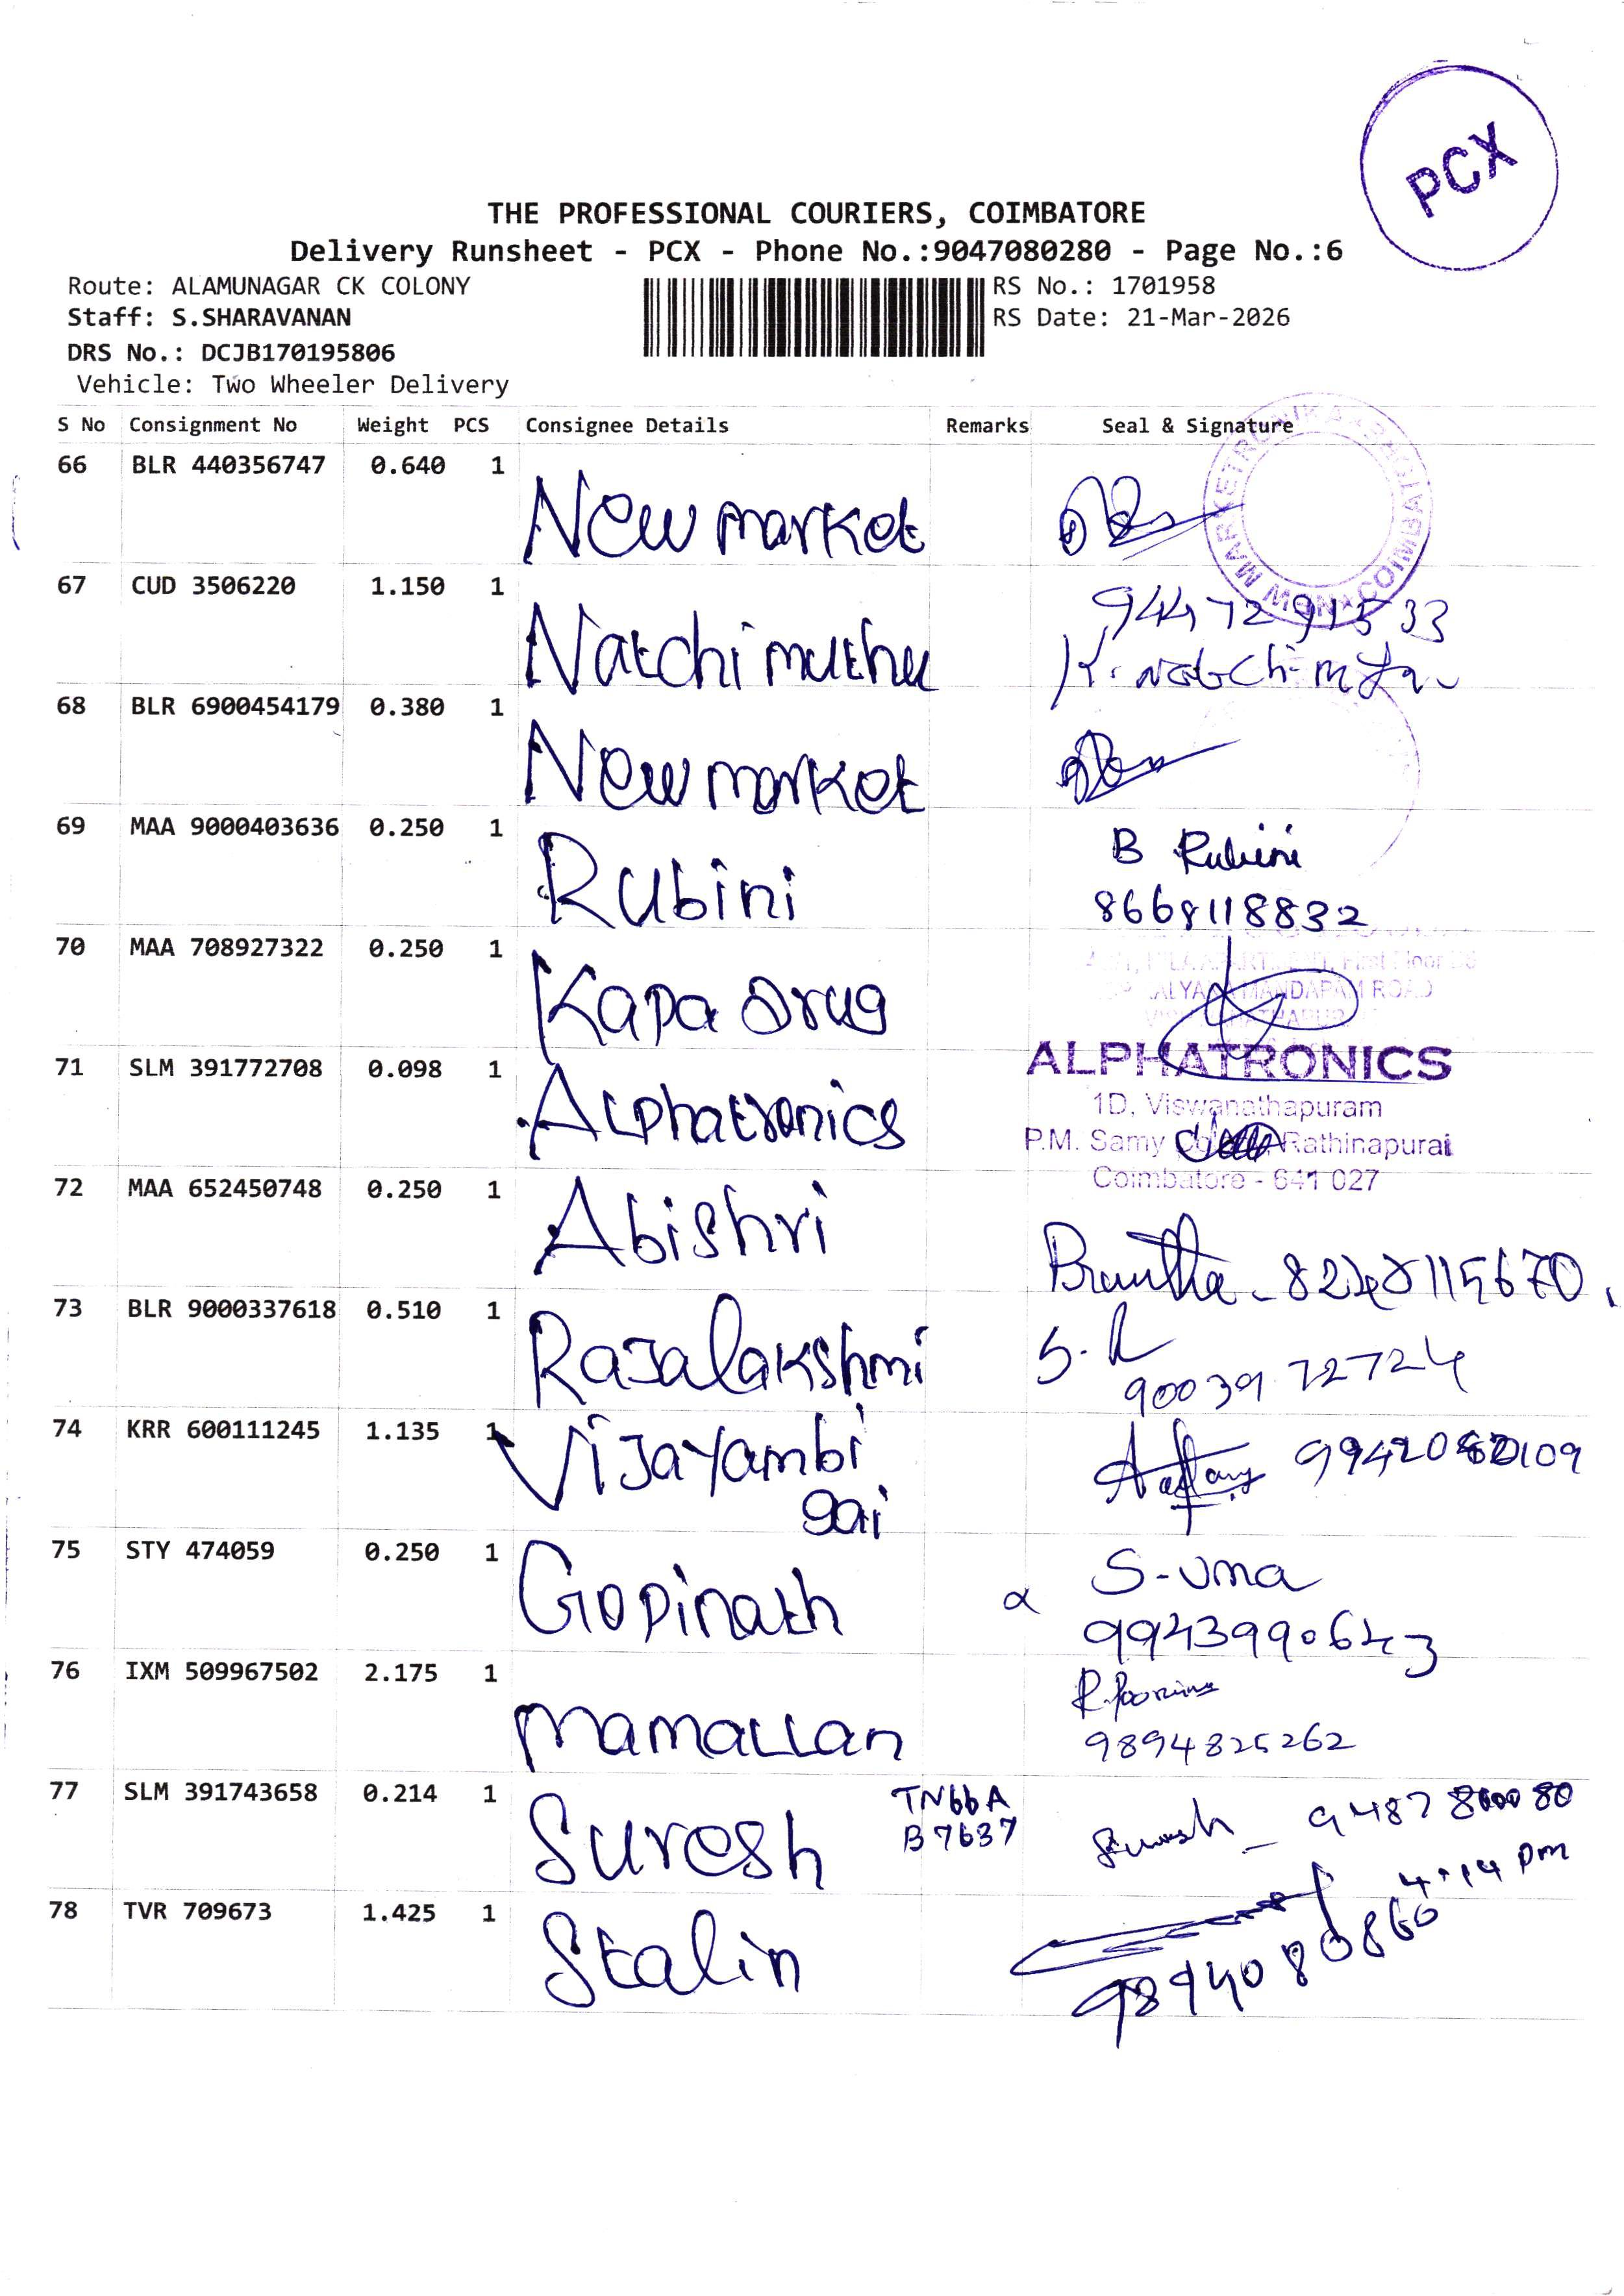 PCX
THE PROFESSIONAL COURIERS, COIMBATORE
Delivery Runsheet - PCX - Phone No.:9047080280 - Page No.:6
Route: ALAMUNAGAR CK COLONY
RS No.: 1701958
Staff: S.SHARAVANAN
RS Date: 21-Mar-2026
DRS No.: DCJB170195806
Vehicle: Two Wheeler Delivery
S No Consignment No Weight PCS Consignee Details Remarks Seal & Signature
66 BLR 440356747 0.640 1 New market
67 CUD 3506220 1.150 1 Natchimuthu
68 BLR 6900454179 0.380 1 New market
69 MAA 9000403636 0.250 1 Rubini B Rubini
8668118832
70 MAA 708927322 0.250 1 Kapa Drug
71 SLM 391772708 0.098 1 Alphatronics ALPHATRONICS
1D, Viswanathapuram
P.M. Samy Rathinapuri
Coimbatore - 641 027
72 MAA 652450748 0.250 1 Abishri
73 BLR 9000337618 0.510 1 Rajalakshmi
90039 72724
74 KRR 600111245 1.135 1 Vijayambi
gai
75 STY 474059 0.250 1 Gopinath S-Uma
9943990643
76 IXM 509967502 2.175 1 Mamallan
9894825262
77 SLM 391743658 0.214 1 Suresh TN66A
B7637
4:14 pm
78 TVR 709673 1.425 1 Stalin